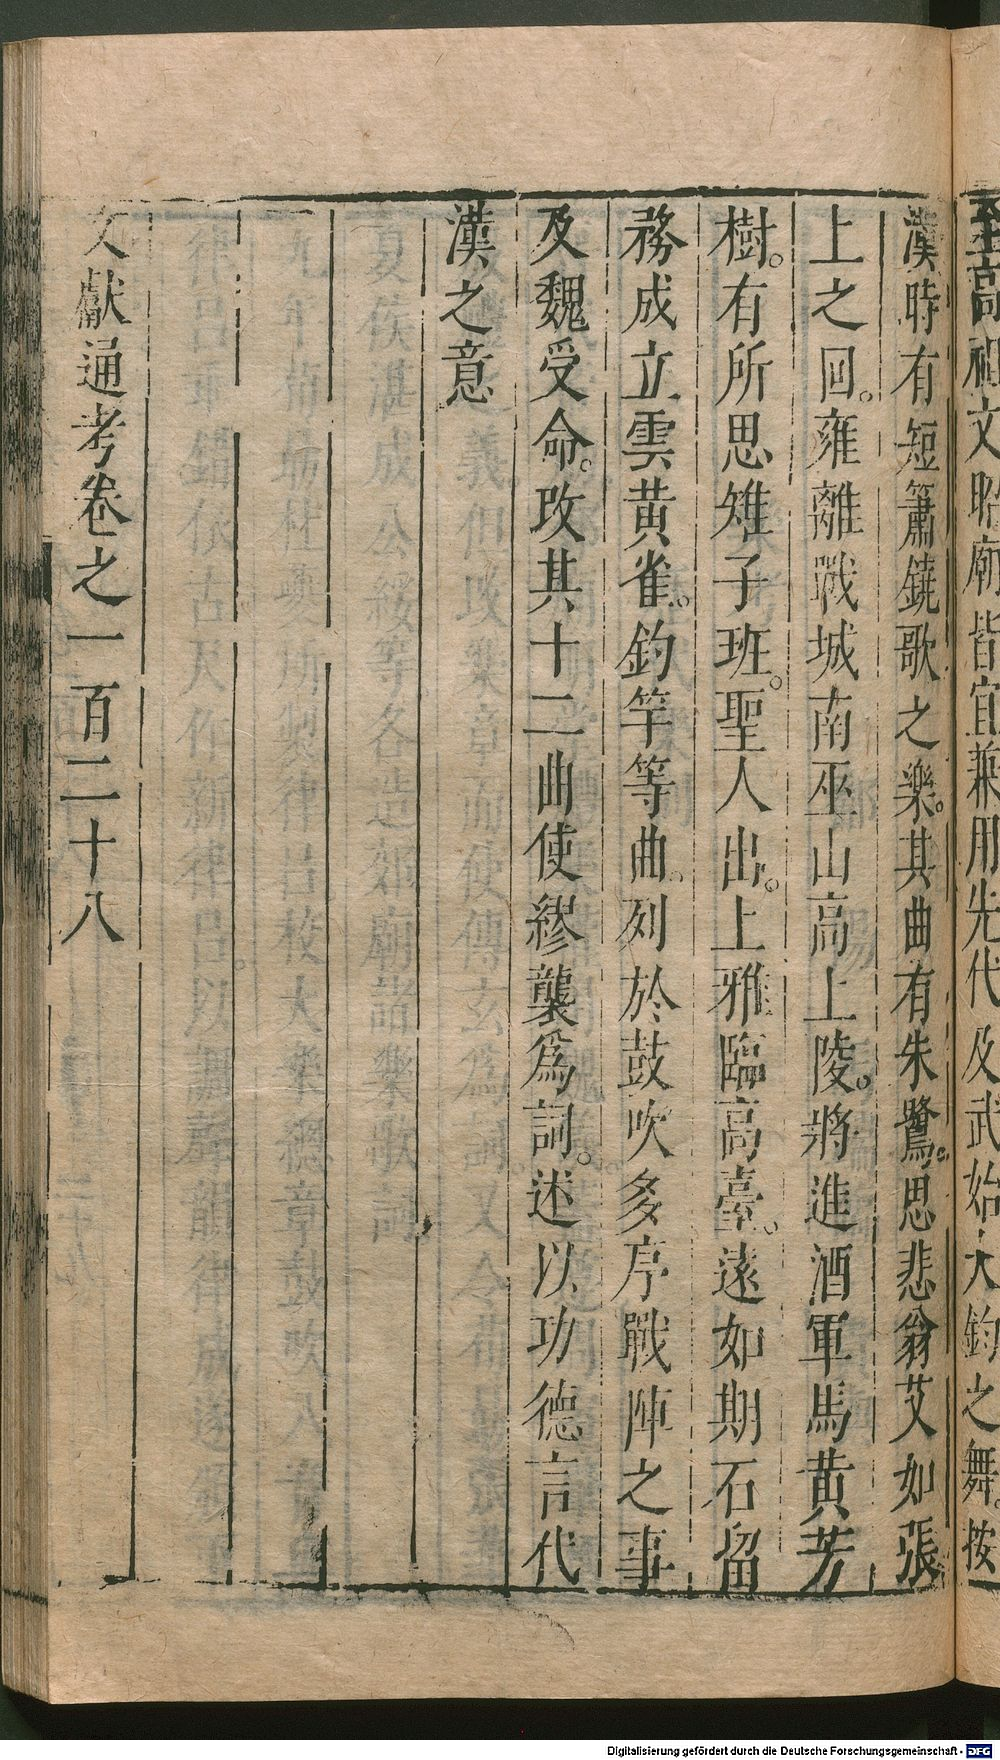 至高祖文昭廟皆宜兼用先代及武始大鈞之舞按
漢時有短簫鐃歌之樂。其曲有朱鷺。思悲翁艾如張
上之回。雍離戰城南巫山高上陵。將進酒軍馬黄芳
樹。有所思雉子班。聖人出。上雅臨高臺。遠如期石留
務成立雲黄雀。釣竿等曲。列於鼓吹多序戰陣之事
及魏受命。改其十二曲使繆襲爲詞。述以功德言代
漢之意
文獻通考卷之一百二十八
Digitalisierung gefördert durch die Deutsche Forschungsgemeinschaft - DFG